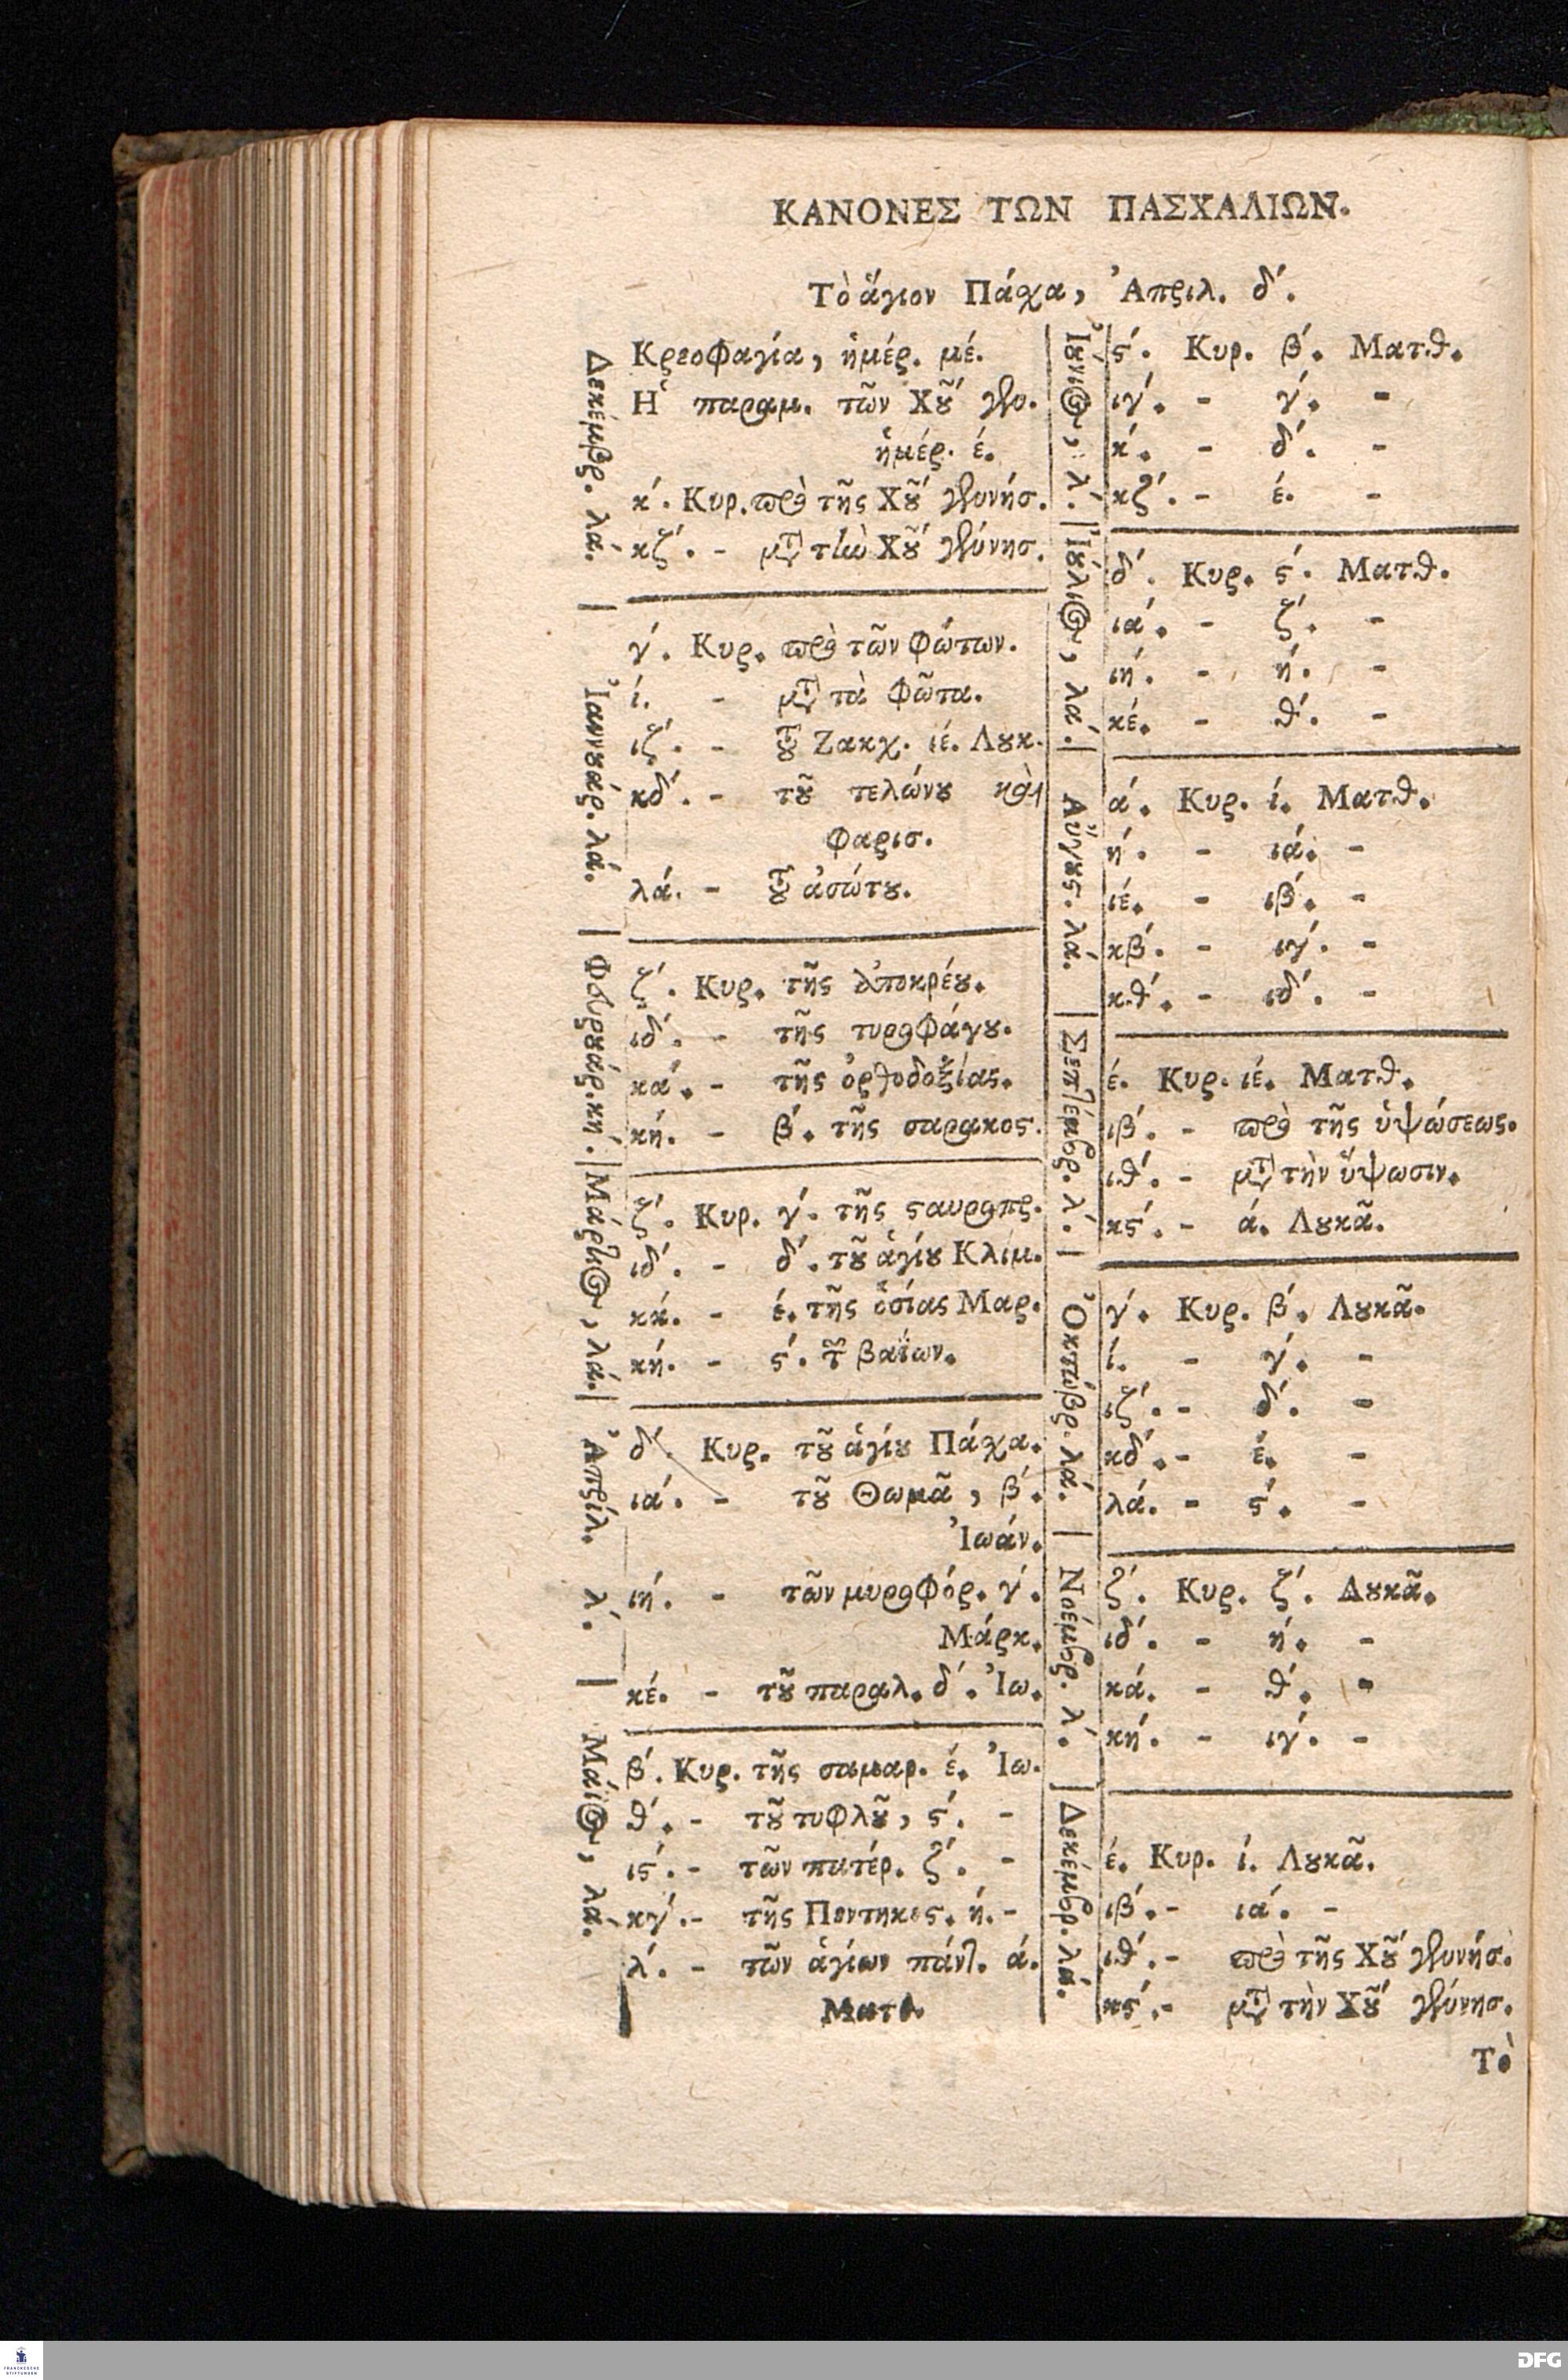 ΚΑΝΟΝΕΣ ΤΩΝ ΠΑΣΧΑΛΙΩΝ.
Τὸ ἅγιον Πάχα, Ἀπριλ. δ΄.
Δεκέμβρ. λά.
Κρεοφαγία, ἡμέρ. μέ.
Ἡ παραμ. τῶν Χȣ῀ γεν.
ἡμέρ. έ.
κ΄. Κυρ. πρὸ τῆς Χȣ῀ γεννήσ.
κζ΄. - μετὰ τὴν Χȣ῀ γέννησ.
Ἰαννȣάρ. λά.
γ΄. Κυρ. πρὸ τῶν Φώτων.
ί. - μετὰ τὰ Φῶτα.
ιζ΄. - τȣ῀ Ζακχ. ιέ. Λȣκ.
κδ΄. - τȣ῀ τελώνȣ καὶ
Φαρισ.
λά. - τȣ῀ ἀσώτȣ.
Φευρȣάρ. κή.
ζ΄. Κυρ. τῆς ἀποκρέȣ.
ιδ΄. - τῆς τυροφάγȣ.
κά. - τῆς ὀρθοδοξίας.
κή. - β΄. τῆς σαρακος.
Μάρτιος, λά.
ζ΄. Κυρ. γ΄. τῆς ϛαυροπρ.
ιδ΄. - δ΄. τȣ῀ ἁγίȣ Κλίμ.
κά. - έ. τῆς ὁσίας Μαρ.
κή. - ϛ΄. τῶν βαΐων.
Ἀπρίλ. λ΄.
δ΄. Κυρ. τȣ῀ ἁγίȣ Πάχα.
ιά. - τȣ῀ Θωμᾶ, β΄.
Ἰωάν.
ιή. - τῶν μυροφόρ. γ΄.
Μάρκ.
κέ. - τȣ῀ παραλ. δ΄. Ἰω.
Μάϊος, λά.
β΄. Κυρ. τῆς σαμαρ. έ. Ἰω.
θ΄. - τȣ῀ τυφλȣ῀, ϛ΄. -
ιϛ΄. - τῶν πατέρ. ζ΄. -
κγ΄. - τῆς Πεντηκοϛ. ή. -
λ΄. - τῶν ἁγίων πάντ. ά.
Ματθ.
Ἰȣ́νιος, λ΄.
ϛ΄. Κυρ. β΄. Ματθ.
ιγ΄. - γ΄. -
κ΄. - δ΄. -
κζ΄. - έ. -
Ἰȣ́λιος, λά.
δ΄. Κυρ. ϛ΄. Ματθ.
ιά. - ζ΄. -
ιή. - ή. -
κέ. - θ΄. -
Αὔγȣϛ. λά.
ά. Κυρ. ί. Ματθ.
ή. - ιά. -
ιέ. - ιβ΄. -
κβ΄. - ιγ΄. -
κθ΄. - ιδ΄. -
Σεπτέμβρ. λ΄.
έ. Κυρ. ιέ. Ματθ.
ιβ΄. - πρὸ τῆς ὑψώσεως.
ιθ΄. - μετὰ τὴν ὕψωσιν.
κϛ΄. - ά. Λȣκᾶ.
Ὀκτώβρ. λά.
γ΄. Κυρ. β΄. Λȣκᾶ.
ί. - γ΄. -
ιζ΄. - δ΄. -
κδ΄. - έ. -
λά. - ϛ΄. -
Νοέμβρ. λ΄.
ζ΄. Κυρ. ζ΄. Λȣκᾶ.
ιδ΄. - ή. -
κά. - θ΄. -
κή. - ιγ΄. -
Δεκέμβρ. λά.
έ. Κυρ. ί. Λȣκᾶ.
ιβ΄. - ιά. -
ιθ΄. - πρὸ τῆς Χȣ῀ γεννήσ.
κϛ΄. - μετὰ τὴν Χȣ῀ γέννησ.
Τὸ
FRANCKESCHE
STIFTUNGEN
DFG